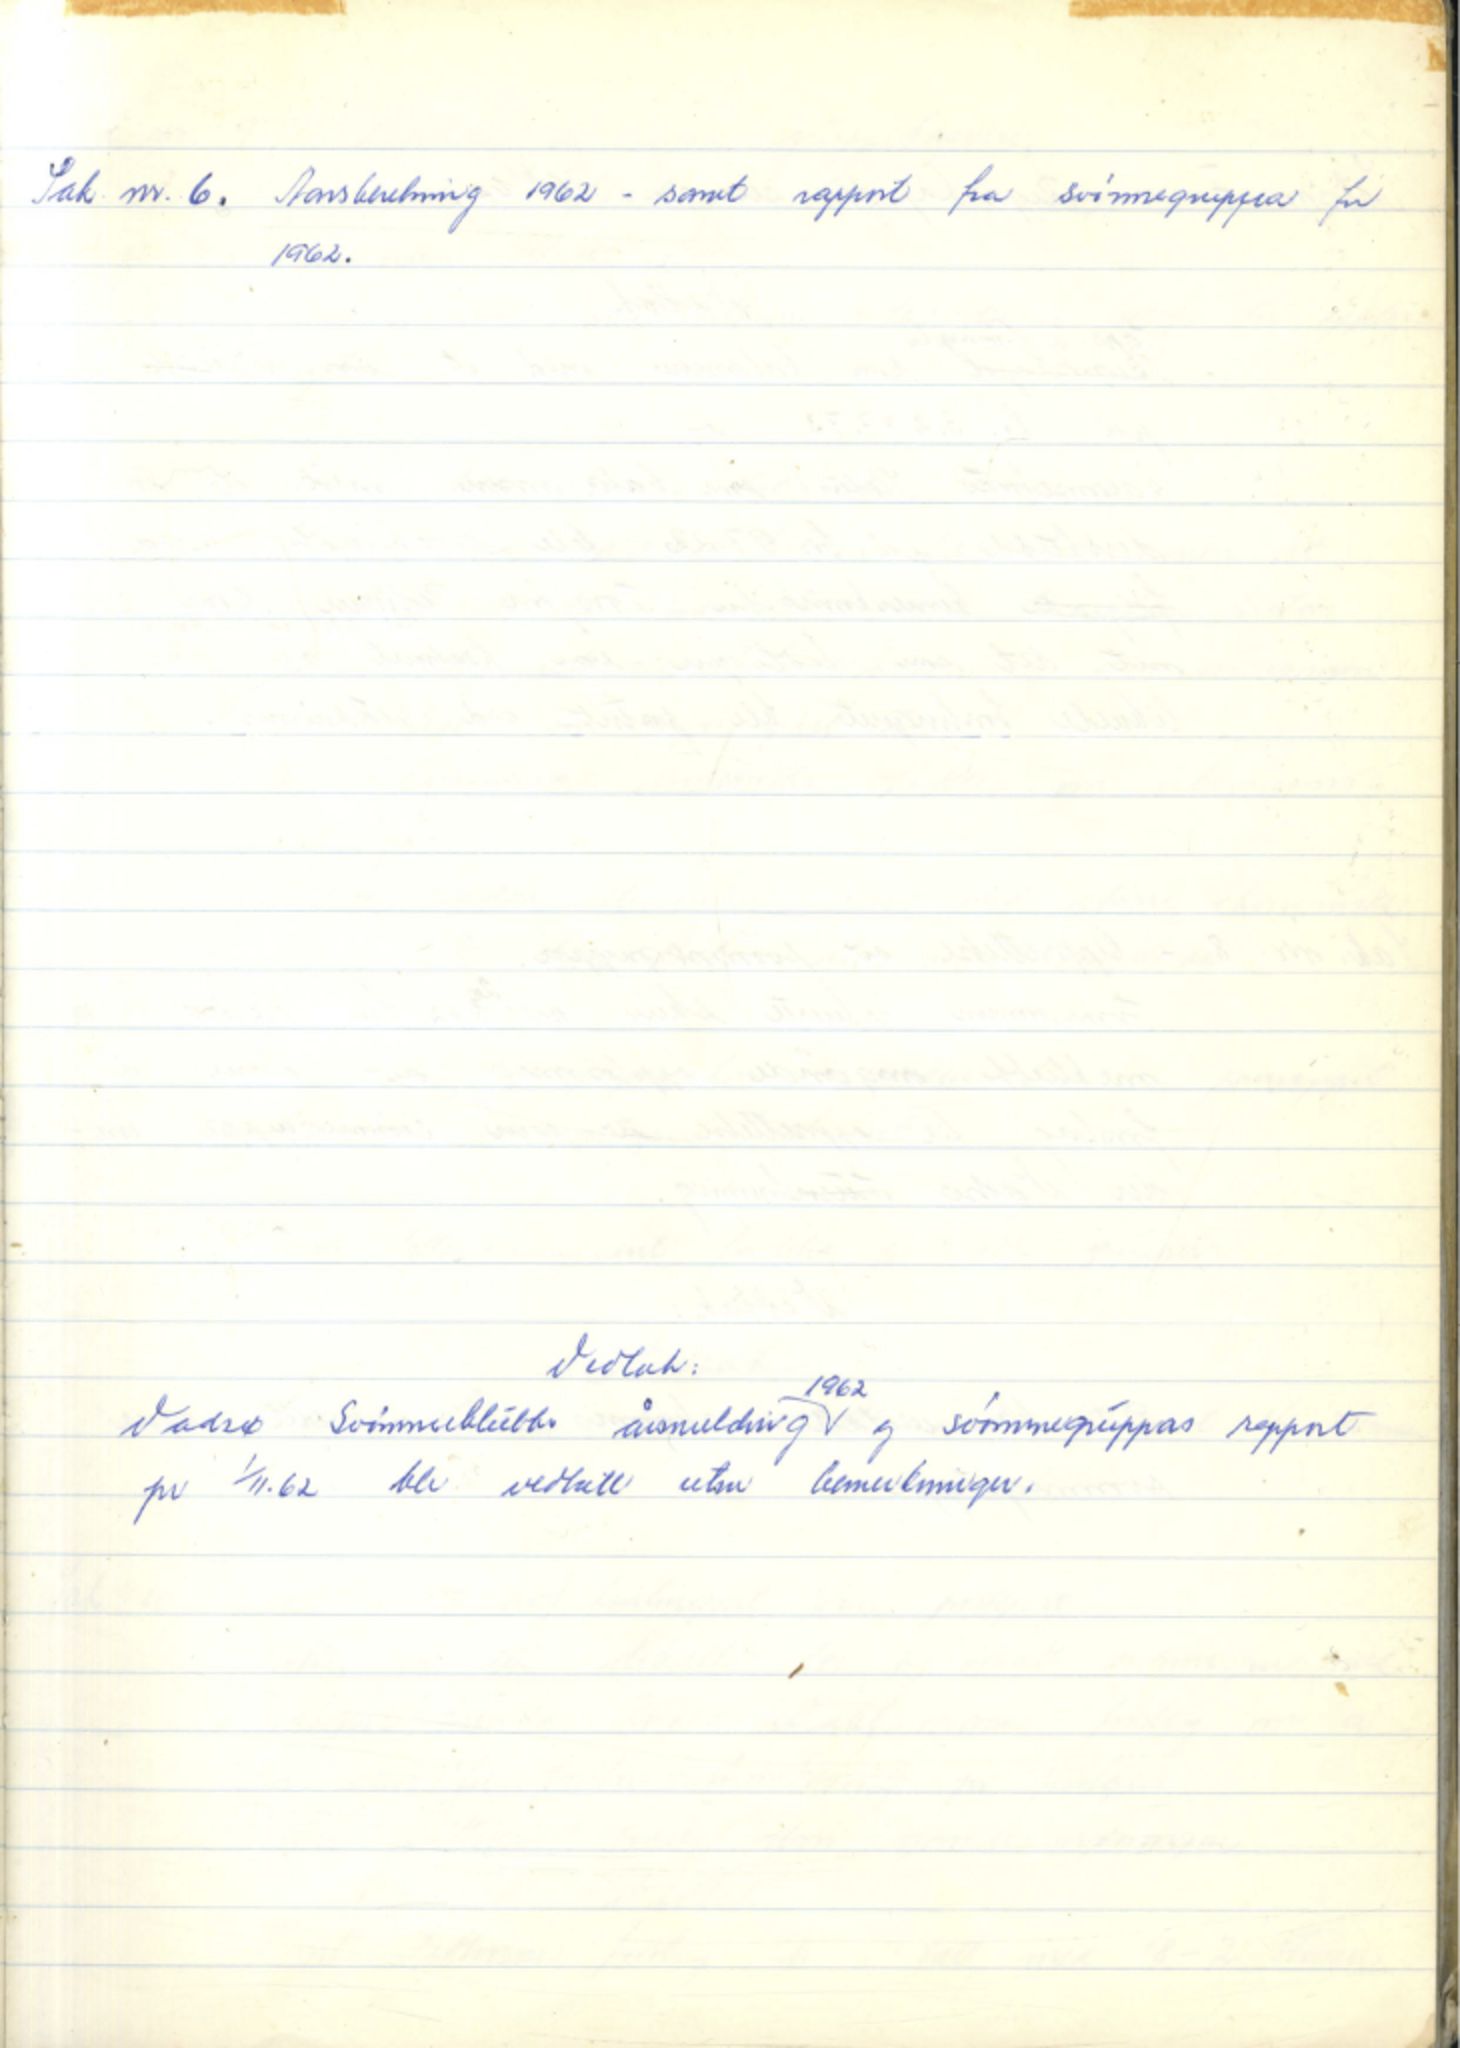 Sak nr. 6. Aarsberetning 1962 - samt rapport fra svömmegruppa for
1962.
Vedtak:
Vadsø Svömmeklubbs årsmelding 1962 og svömmegruppas rapport
pr 1/11.62 ble vedtatt uten bemerkninger.